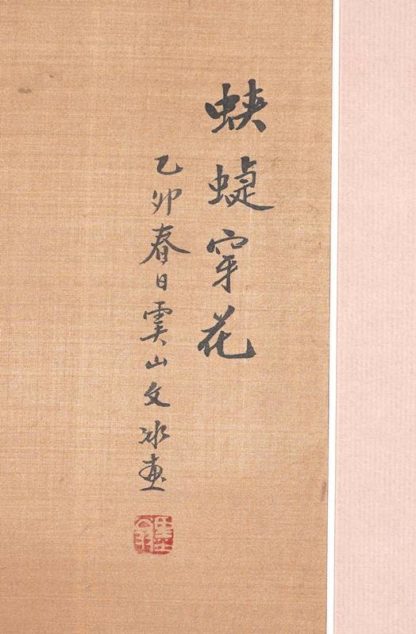 蛺蜨穿花
乙卯春日虞山文冰畫